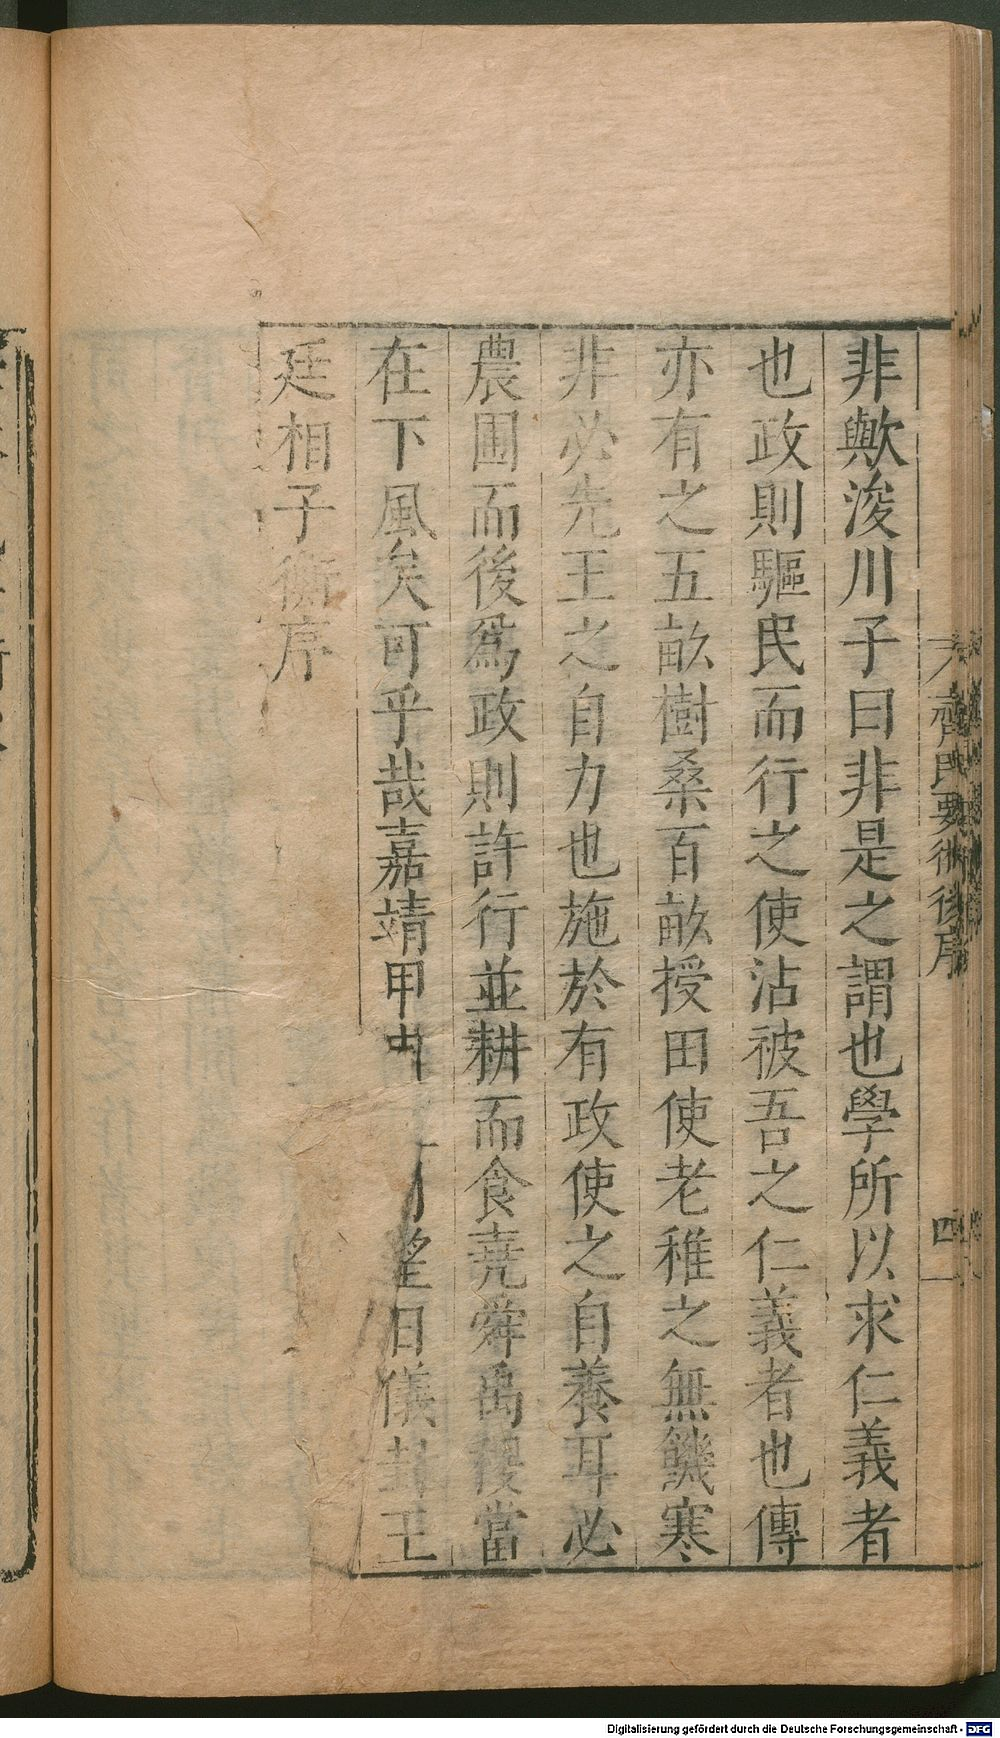 齊民要術後序
四
非歟浚川子曰非是之謂也學所以求仁義者
也政則驅民而行之使沾被吾之仁義者也傳
亦有之五畝樹桑百畝授田使老稚之無饑寒
非必先王之自力也施於有政使之自養耳必
農圃而後爲政則許行並耕而食堯舜禹稷當
在下風矣可乎哉嘉靖甲申 望日儀封王
廷相子衡序
Digitalisierung gefördert durch die Deutsche Forschungsgemeinschaft - DFG